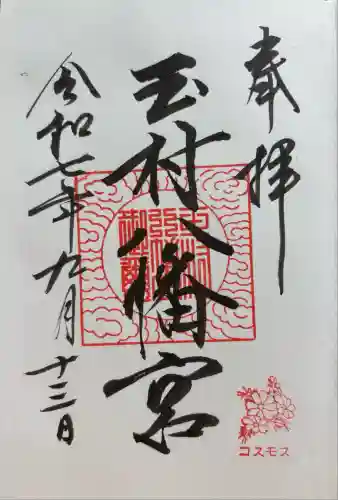 奉拝
玉村八幡宮
令和七年九月十三日
コスモス